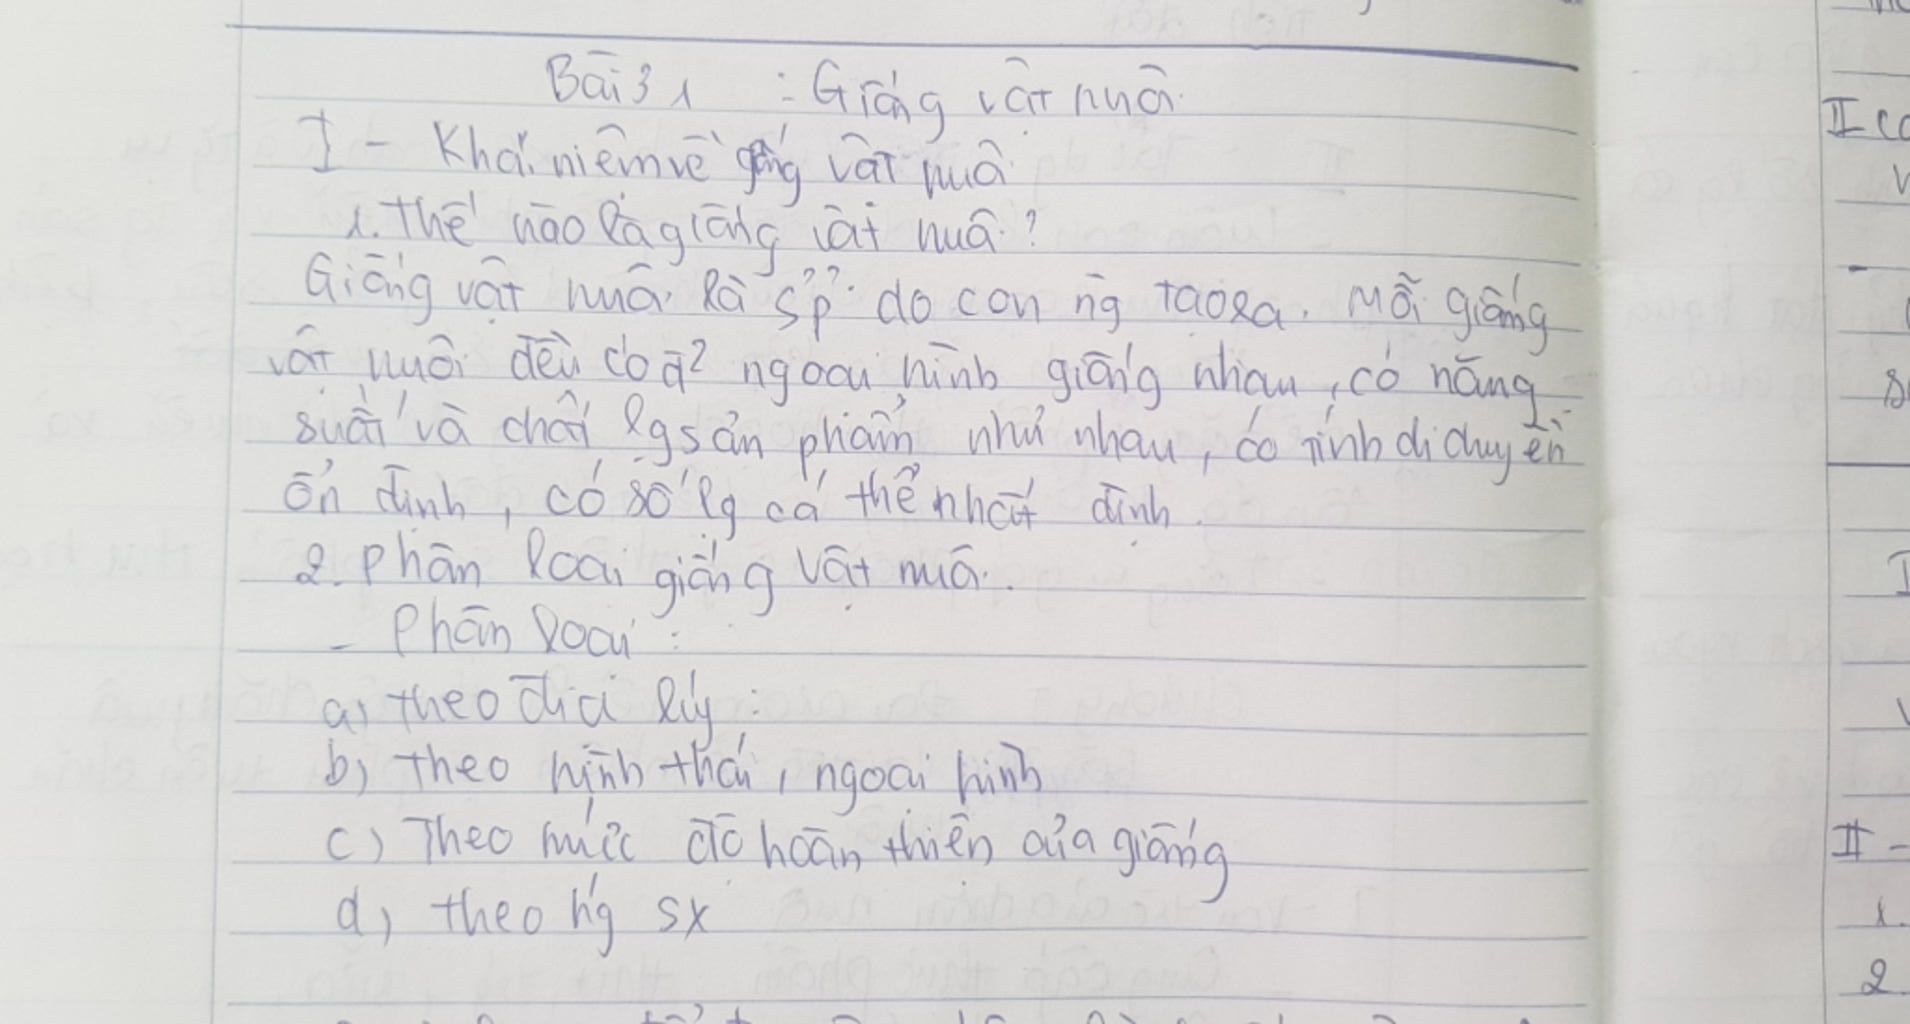 Bài 31 : Giống vật nuôi
I - Khái niệm về giống vật nuôi
1. Thế nào là giống vật nuôi?
Giống vật nuôi là sp do con ng tạo ra. Mỗi giống
vật nuôi đều có đ² ngoại hình giống nhau, có năng
suất và chất lg sản phẩm như nhau, có tính di chuyền
ổn định, có số lg cá thể nhất định.
2. Phân loại giống vật nuôi.
- Phân loại:
a) theo địa lý:
b) theo hình thái, ngoại hình
c) Theo mức độ hoàn thiện của giống
d) theo hg sx
II
-
I
II -
1.
2.